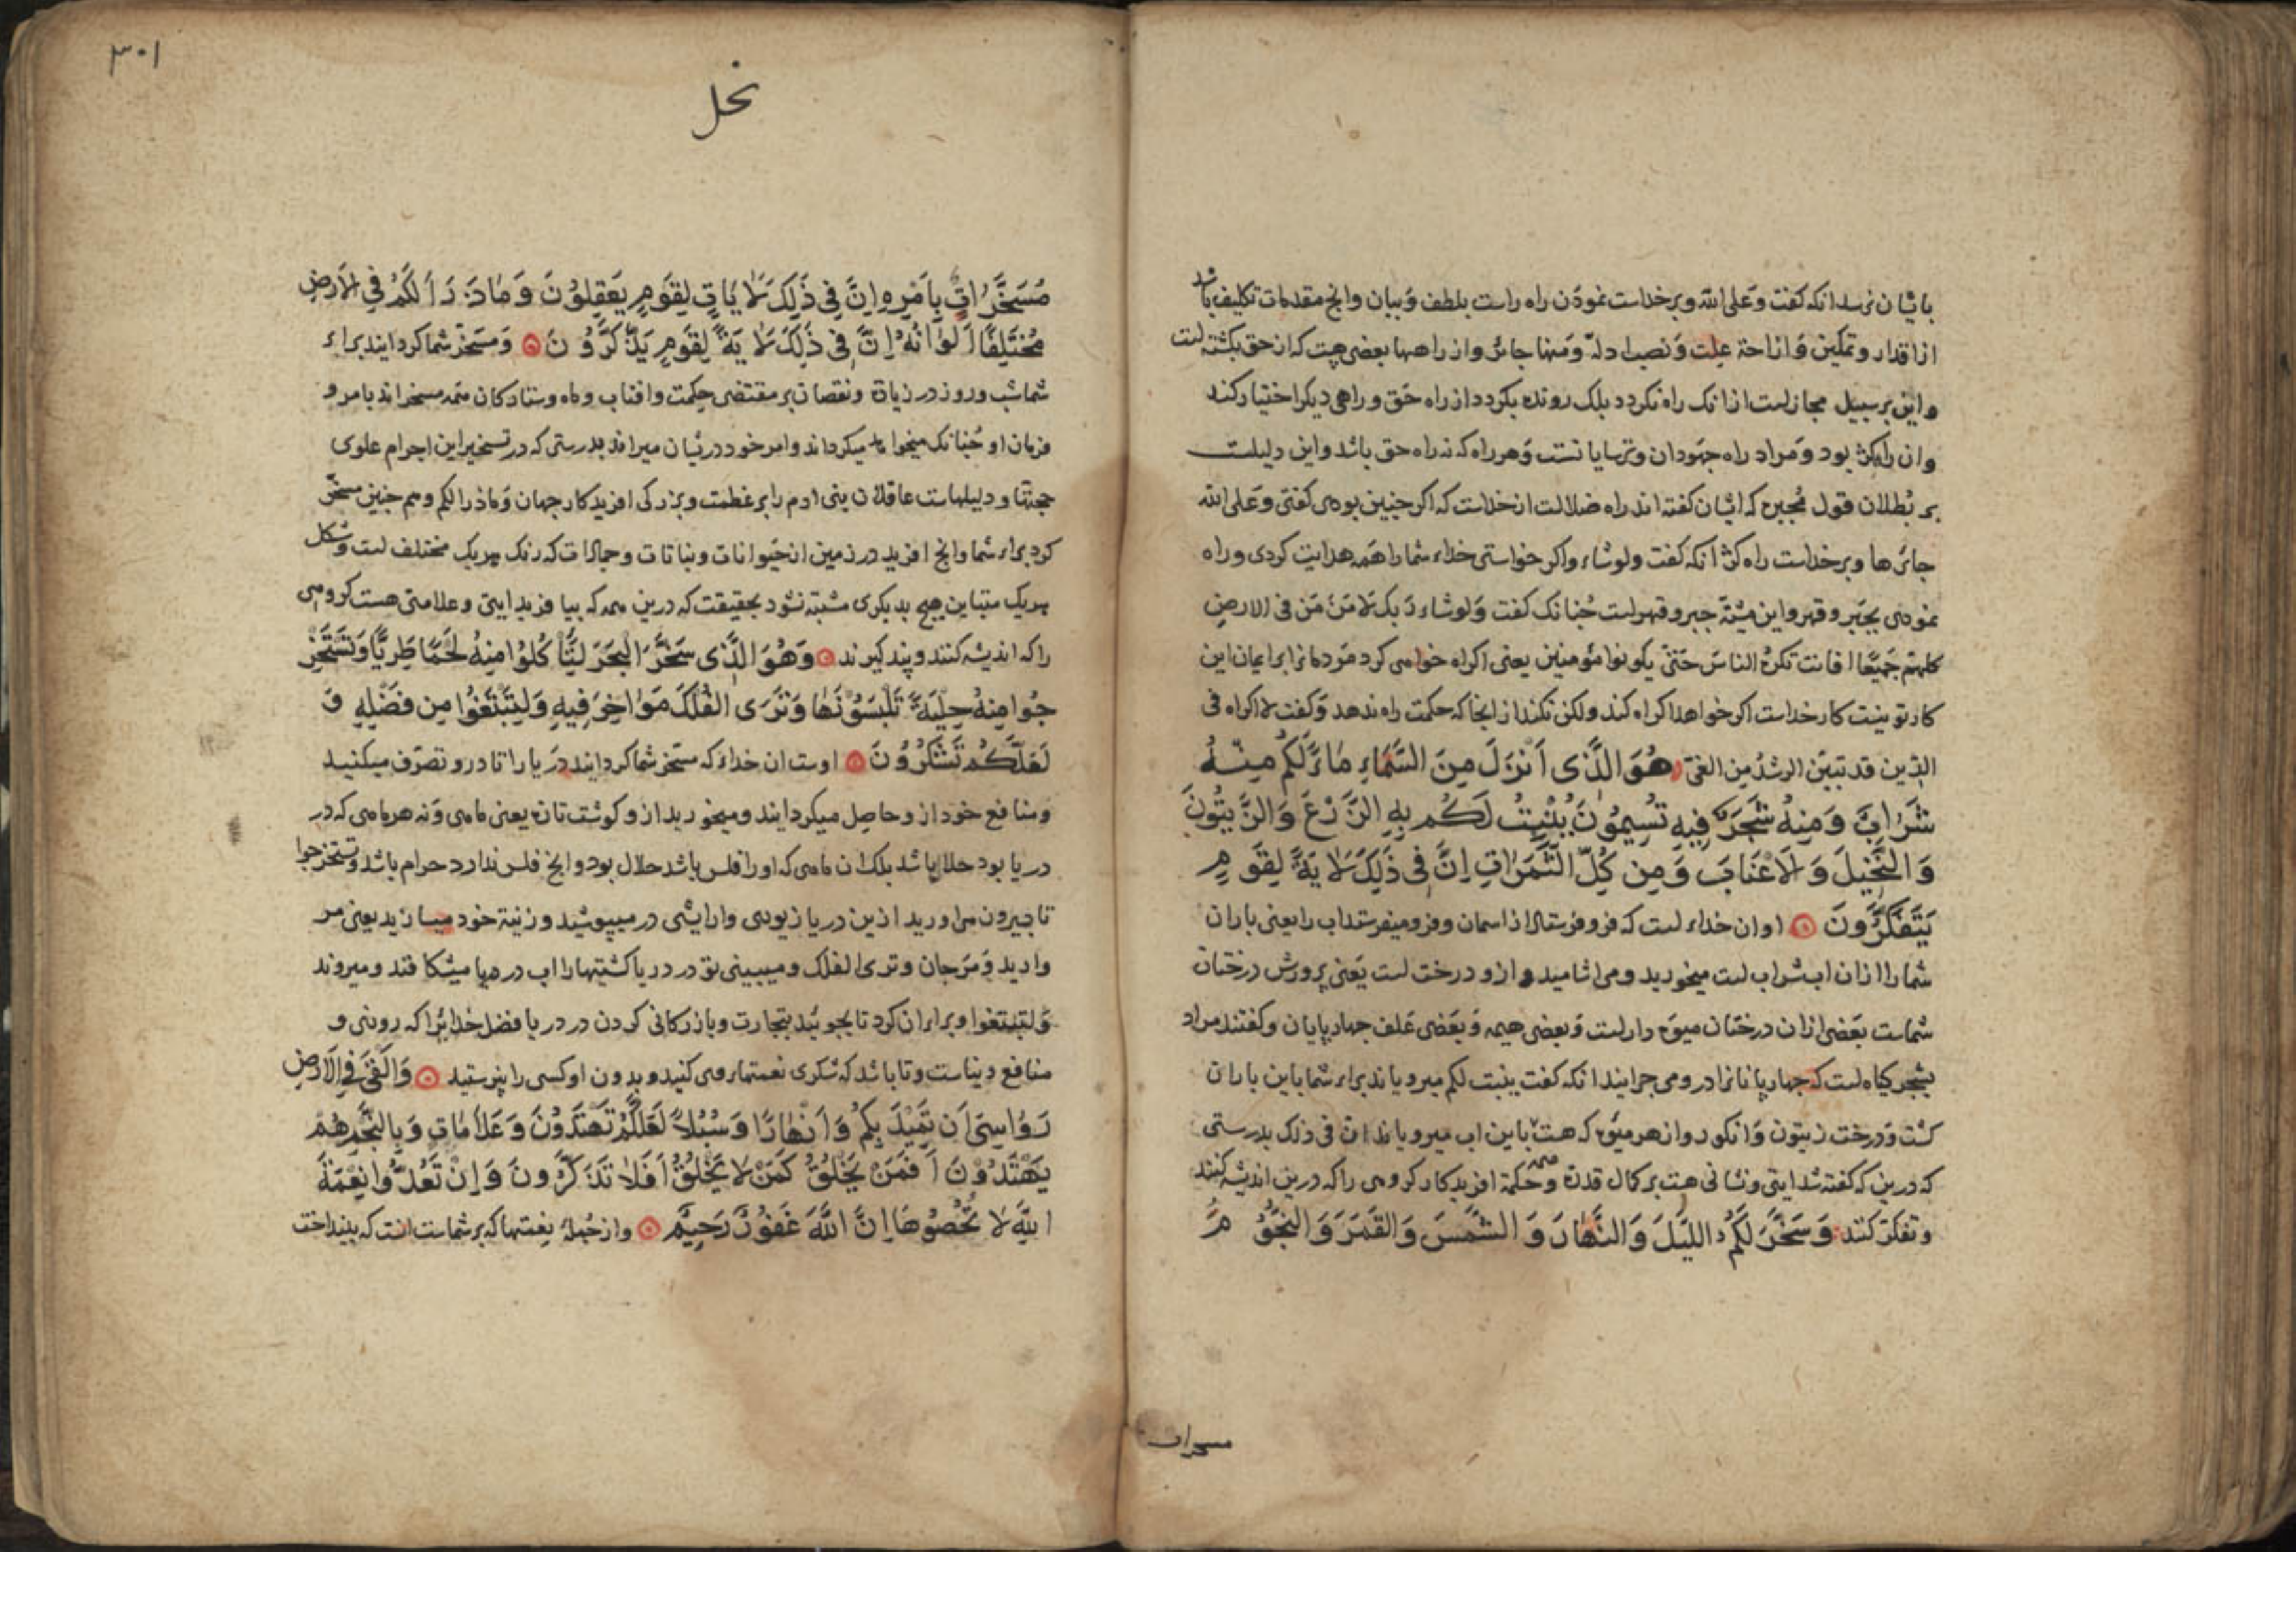 باشان نرسد انکه کفت وَعلی الله وبر خداست نموذن راه راست بلطف وَبیان وانچ مقدمات تکلیف باشد
از اقدار وتمکین وَازاحة علت وَنصب ادلّه وَمنها جائر واز راهها بعضی هست که از حق بکشته است
واین بر سبیل مجازست ازانک راه نکردد بلک رونده بکردد از راه حَق وراهی دیکر اختیار کند
وان راه کژ بود وَمراد راه جهودان وترسایانست وَهر راه که نه راه حق باشد واین دلیلست
بر بُطلان قول مُجبره که ایشان کفته اند راه ضلالت از خداست که اکر چنین بودی کفتی وَعلی الله
جائرها وبر خداست راه کژ انکه کفت ولوشاء واکر خواستی خداء شما را همه هدایت کردی وراه
نمودی بجَبر وقهر واین مشیّة جبر وقهرست چُنانک کفت وَلوشاء رَبک لآمَنَ مَن فی الارضِ
کلهم جَمیعًا افانت تکرهُ الناسَ حَتّی یکونوا مؤمنین یعنی اکراه خواهی کرد مَردمانرا بر ایمان این
کار تو نیست کار خداست اکر خواهد اکراه کند ولکن نکند از انجا که حکمت راه ندهد وَکفت لا اکراه فی
الدّین قد تبیّن الرشدُ مِن الغیّ هُوَ الَّذی اَنزَلَ مِنَ السَّمَاءِ مَاءً لَکُم مِنهُ
شَرَابٌ وَمِنهُ شَجَرٌ فِیهِ تُسِیمُونَ یُنبِتُ لَکُم بِهِ الزَّرْعَ وَالزَّیتُونَ
وَالنَّخِیلَ وَالاَعْنَابَ وَمِن کُلِّ الثَّمَرَاتِ اِنَّ فِی ذَلِکَ لاَیَةً لِقَومٍ
یَتَفَکَّرُونَ او ان خداء است که فرو فرستاد از اسمان وفرو میفرستد اب را یعنی باران
شما را ازان اب شراب است میخورید ومی اشامید واز و درخت است یَعنی پرورش درختان
شماست بعَضی ازان درختان میوَه دارست وَبعضی هیمه وَبعَضی عَلف چهارپایان وکفتند مراد
بشجر کیاه است که چهارپایانرا درو می چرانید انکه کفت ینبت لکم میرویاند براء شما باین باران
کشت وَدرخت زیتون وَانکور واز هر میوَه که هست باین اب میرویاند انّ فی ذلک بدرستی
که درین که کفته شد ایتی ونشانی هست بر کمال قدرة وحکمة افریدکار کروهی را که درین اندیشه کنند
وتفکرَ کنند وَسَخَّرَ لَکُمُ اللَّیْلَ وَالنَّهَارَ وَالشَّمْسَ وَالقَمَرَ وَالنُّجُومُ
مسخرات
۳۰۱
نحل
مُسَخَّرَاتٌ بِاَمْرِهِ اِنَّ فِی ذَلِکَ لاَیَاتٍ لِقَومٍ یَعْقِلُونَ وَمَا ذَرَاَ لَکُمْ فِی الاَرضِ
مُختَلِفًا اَلوَانُهُ اِنَّ فِی ذَلِکَ لاَیَةً لِقَومٍ یَذَّکَّرُونَ وَمسَخّر شما کردانید براء
شما شب وروز در زیاة ونقصان بر مقتضی حِکمت وافتاب وماه وستارکان همه مسخر اند بامر و
فرمان او چُنانک میخواهد میکرداند وامر خود دریشان میراند بدرستی که در تسخیر این اجرام علوی
حجتها ودلیلهاست عاقلان بنی ادم را بر عظمت وبزرکی افریدکار جهان وَماذرا لکم وهم چنین مسخّر
کرد براء شما وانچ افرید در زمین از حَیوانات ونباتات وجمادات که رنک هریک مختلف است وشکل
هریک متباین هیچ بدیکری مشتبه نشود بحقیقت که درین همه که بیافرید ایتی وعلامتی هست کروهی
را که اندیشه کنند وپند کیرند وَهُوَ الَّذی سَخَّرَ البَحرَ لِتَاْکُلُوا مِنهُ لَحْمًا طَرِیًّا وَتَسْتَخْرِ
جُوا مِنهُ حِلْیَةً تَلْبَسُونَهَا وَتَرَی الفُلکَ مَوَاخِرَ فِیهِ وَلِتَبْتَغُوا مِن فَضْلِهِ وَ
لَعَلَّکُم تَشْکُرُونَ اوست ان خداء که مسَخر شما کردانید دریا را تا درو تصرّف میکنید
ومنافع خود ازو حاصِل میکردانید ومیخورید ازو کوشت تازه یعنی ماهی وَنه هر ماهی که در
دریا بود حلال باشد بلک ان ماهی که اورا فلس باشد حلال بود وانچ فلس ندارد حرام باشد وتستخرجوا
تا بیرون می اورید ازین دریا زیوری وارایشی در میپوشید وزینة خود میسازید یعنی مر
وارید وَمَرجان وتری الفلک ومیبینی تو در دریا کشتیها را اب در دریا میشکافند ومیروند
وَلتبتغوا وبراء ان کرد تا بجوئید بتجارت وبازرکانی کردن در دریا فضل خدایرا که روزی و
منافع دنیاست وتا باشد که شکری نعمتهاء وی کنید وبدون او کسی را نپرستید وَاَلْقَی فِی الاَرْضِ
رَوَاسِیَ اَن تَمِیْدَ بِکُمْ وَاَنْهَارًا وَسُبُلاً لَعَلَّکُمْ تَهْتَدُوْنَ وَعَلاَمَاتٍ وَبِالنَّجْمِ هُمْ
یَهْتَدُوْنَ اَفَمَنْ یَخْلُقُ کَمَنْ لاَ یَخْلُقُ اَفَلاَ تَذَکَّرُونَ وَاِنْ تَعُدُّوا نِعْمَةَ
اللهِ لاَ تُحْصُوهَا اِنَّ اللهَ غَفُورٌ رَحِیْمٌ واز جُملهٔ نعمتها که بر شماست انست که بینداخت